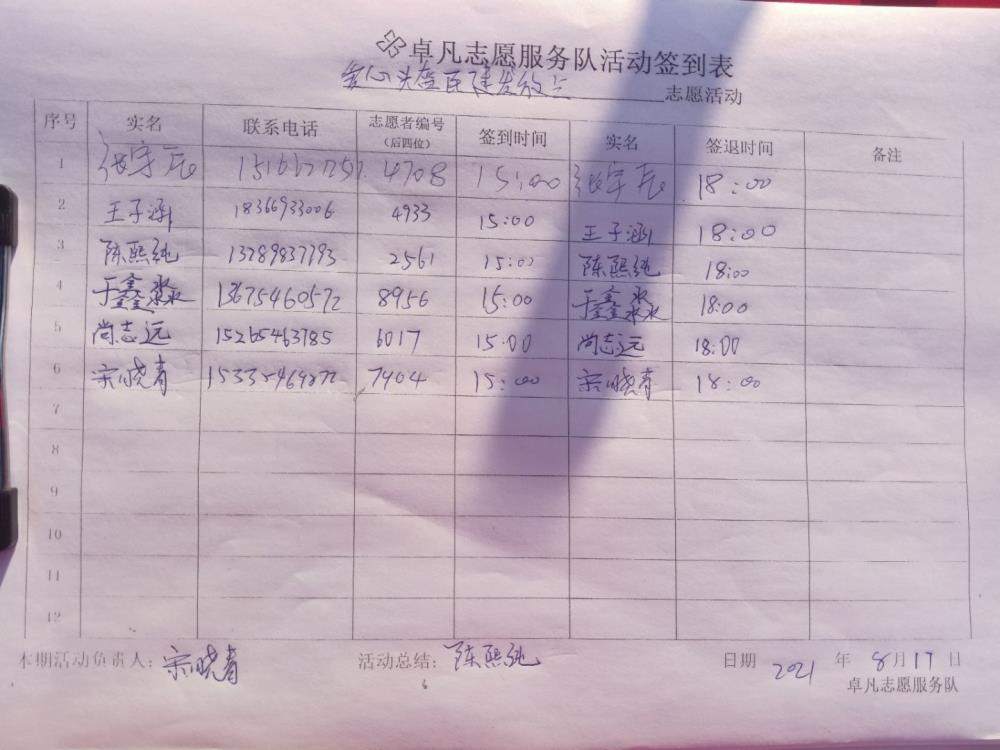 卓凡志愿服务队活动签到表
爱心头盔民建发放点 志愿活动
序号 实名 联系电话 志愿者编号（后四位） 签到时间 实名 签退时间 备注
1 张宇辰 4708 15:00 张宇辰 18:00
2 王子涵 18366933006 4933 15:00 王子涵 18:00
3 陈熙纯 13789837793 2561 15:00 陈熙纯 18:00
4 于鑫淼 13675460572 8956 15:00 于鑫淼 18:00
5 尚志远 15265463785 6017 15:00 尚志远 18:00
6 宋晓青 7404 15:00 宋晓青 18:00
7
8
9
10
11
12
本期活动负责人：宋晓青 活动总结：陈熙纯 日期 2021 年 8月17日
卓凡志愿服务队